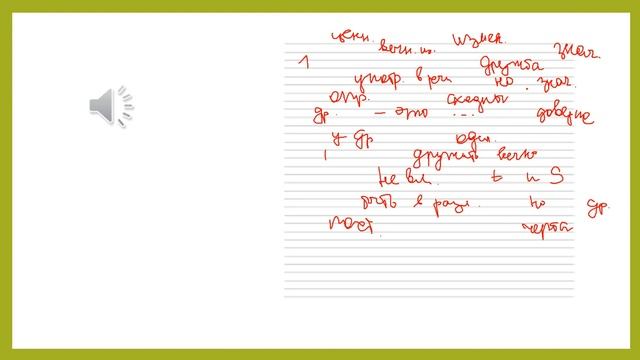 ценн. вечн. из. измен. знач.
1 дружба
употр. в речи но. знач.
опр. сходны
др. - это ... доверие
у др один.
1 дружить вечно
не вл. t и S
быть в разл. но др.
пост. черта